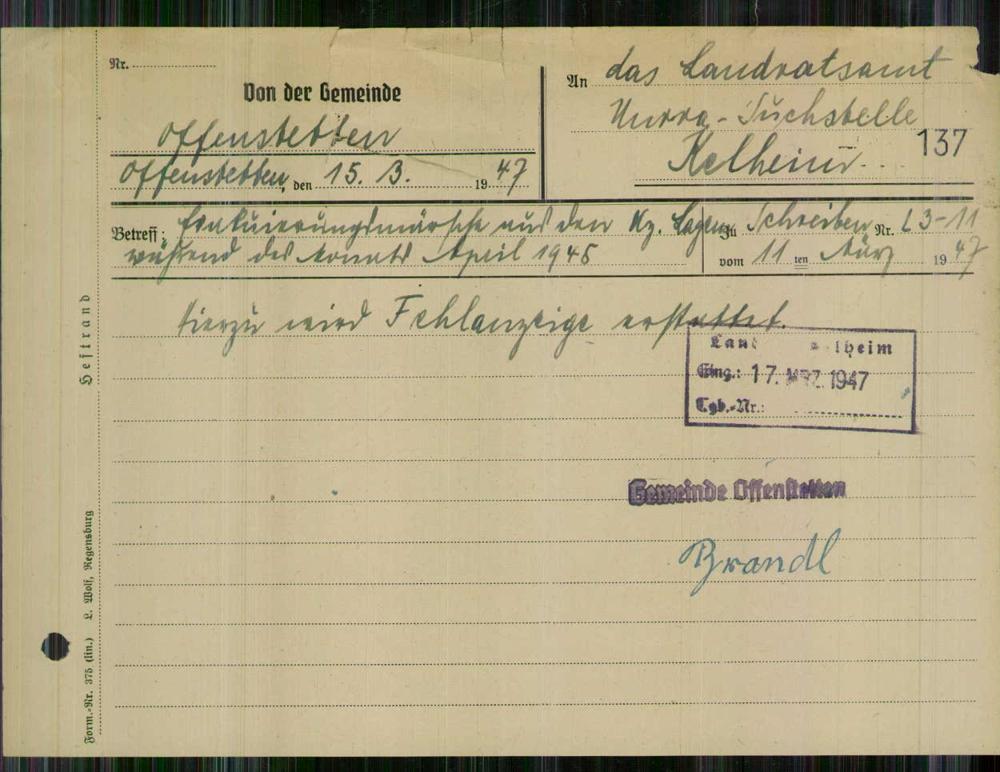 Nr.
Von der Gemeinde
Offenstetten
Offenstetten, den 15. 3. 1947
An das Landratsamt
Unrra-Suchstelle
Kelheim
137
Betreff: Evakuierungsmärsche aus den Kz. Lagern
während des Monats April 1945
Zu Schreiben Nr. L 3-11
vom 11 ten März 1947
Hierzu wird Fehlanzeige erstattet.
Eing.: 17. MRZ. 1947
Tgb.-Nr.:
Gemeinde Offenstetten
Brandl
Heftrand
Form.-Nr. 375 (lin.) L. Wolf, Regensburg